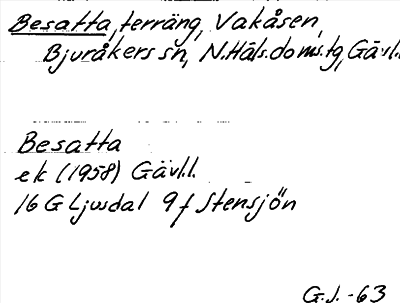 Besatta, terräng, Vakåsen,
Bjuråkers sn, N.Häls.doms.tg, Gävl.l.
Besatta
ek (1958) Gävl.l.
16 G Ljusdal 9 f Stensjön
G.J. -63